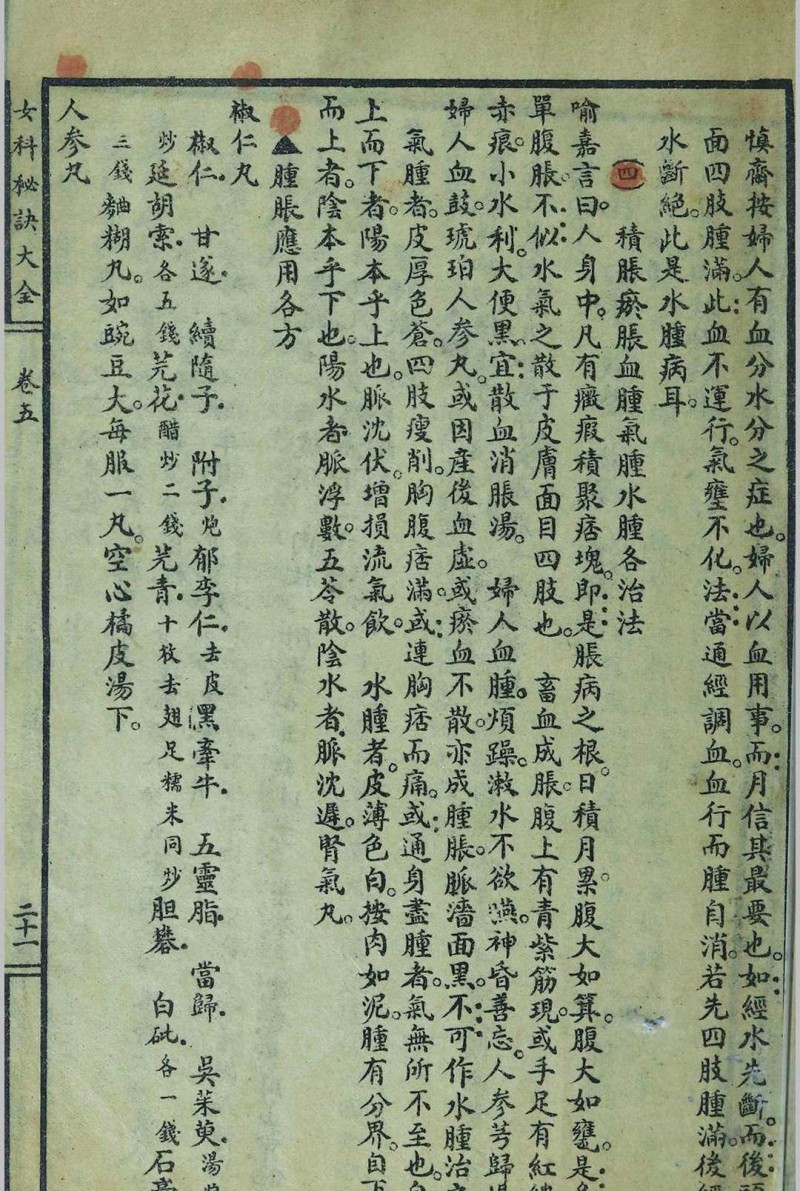 慎齋按婦人有血分水分之症也。婦人以血用事。而月信其最要也。如經水先斷。而後
面四肢腫滿。此血不運行。氣壅不化。法當通經調血。血行而腫自消。若先四肢腫滿。後
水斷絕。此是水腫病耳。
四 積脹瘀脹血腫氣腫水腫各治法
喻嘉言曰。人身中。凡有癥瘕積聚痞塊。即是脹病之根。日積月累。腹大如箕。腹大如甕。是
單腹脹。不似水氣之散于皮膚面目四肢也。 畜血成脹。腹上有青紫筋現。或手足有紅
赤痕。小水利。大便黑。宜散血消脹湯。 婦人血腫。煩躁。漱水不欲嚥。神昏善忘。人參芎歸
婦人血鼓。琥珀人參丸。或因產後血虛。或瘀血不散。亦成腫脹。脈濇面黑。不可作水腫治
氣腫者。皮厚色蒼。四肢瘦削。胸腹痞滿。或連胸痞而痛。或通身盡腫者。氣無所不至也。
上而下者。陽本乎上也。脈沈伏。增損流氣飲。 水腫者。皮薄色白。按肉如泥。腫有分界。自下
而上者。陰本乎下也。陽水者。脈浮數。五苓散。陰水者。脈沈遲。腎氣丸。
▲腫脹應用各方
椒仁丸
椒仁. 甘遂. 續隨子. 附子.炮 郁李仁.去皮 黑牽牛. 五靈脂. 當歸. 吳茱萸.湯
炒 延胡索.各五錢 芫花.醋炒二錢 芫青.十枚去翅足糯米同炒 胆礬. 白砒.各一錢 石膏
三錢 麯糊丸。如豌豆大。每服一丸。空心橘皮湯下。
人參丸
女科秘訣大全
卷五
二十一